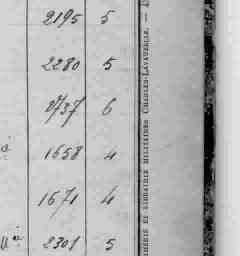 2195 5
2280 5
8737 6
1658 4
1671 4
2301 5
IMERIE ET LIBRAIRIE MILITAIRES CHARLES-LAVAUZELLE. —